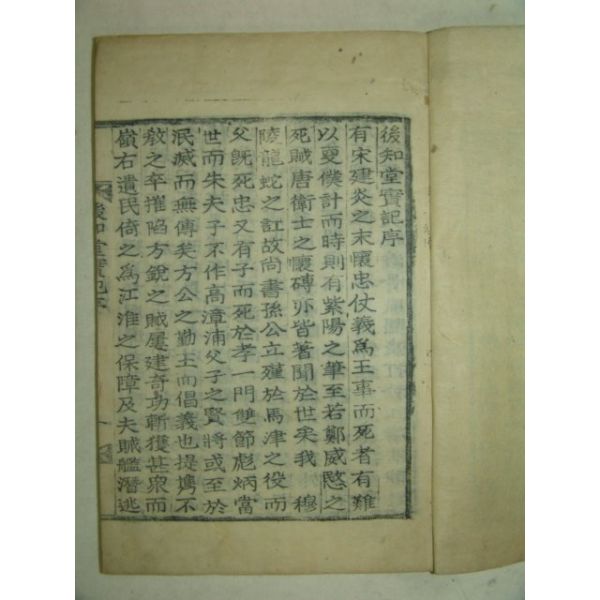 後知堂實記序
有宋建炎之末懷忠仗義爲王事而死者有難
以更僕計而時則有紫陽之筆至若鄭威愍之
死賊唐衛士之懷磚亦皆著聞於世矣我 穆
陵龍蛇之訌故尚書孫公立殣於馬津之役而
父旣死忠又有子而死於孝一門雙節彪炳當
世而朱夫子不作高漳浦父子之賢將或至於
泯滅而無傳矣方公之勤王而倡義也提携不
敎之卒摧陷方銳之賊屢建奇功斬獲甚衆而
嶺右遺民倚之爲江淮之保障及夫賊艦潛逃
後知堂實記序
一